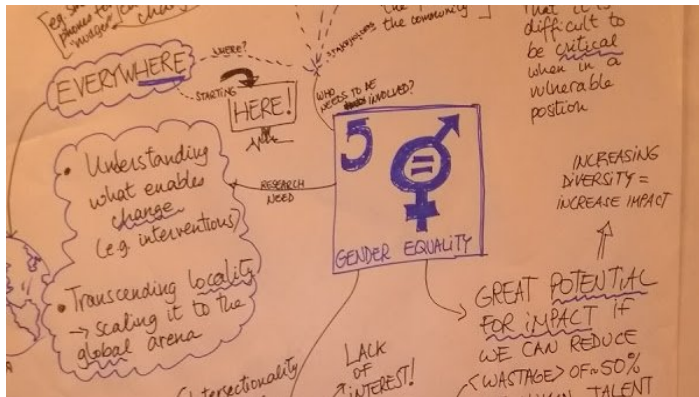 phones for
"nudges"
cha
the community
that it is
difficult to
be critical
when in a
vulnerable
position
EVERYWHERE
WHERE?
STARTING
HERE!
STAKEHOLDERS
WHO
NEEDS TO BE
INVOLVED?
5
=
GENDER EQUALITY
RESEARCH
NEED
• Understanding
what enables
change
(e.g. interventions)
• Transcending locality
→ scaling it to the
global arena
INCREASING
DIVERSITY =
INCREASE IMPACT
GREAT POTENTIAL
FOR IMPACT IF
WE CAN REDUCE
<WASTAGE> OF ~50%
TALENT
LACK
OF
INTEREST!
Intersectionality